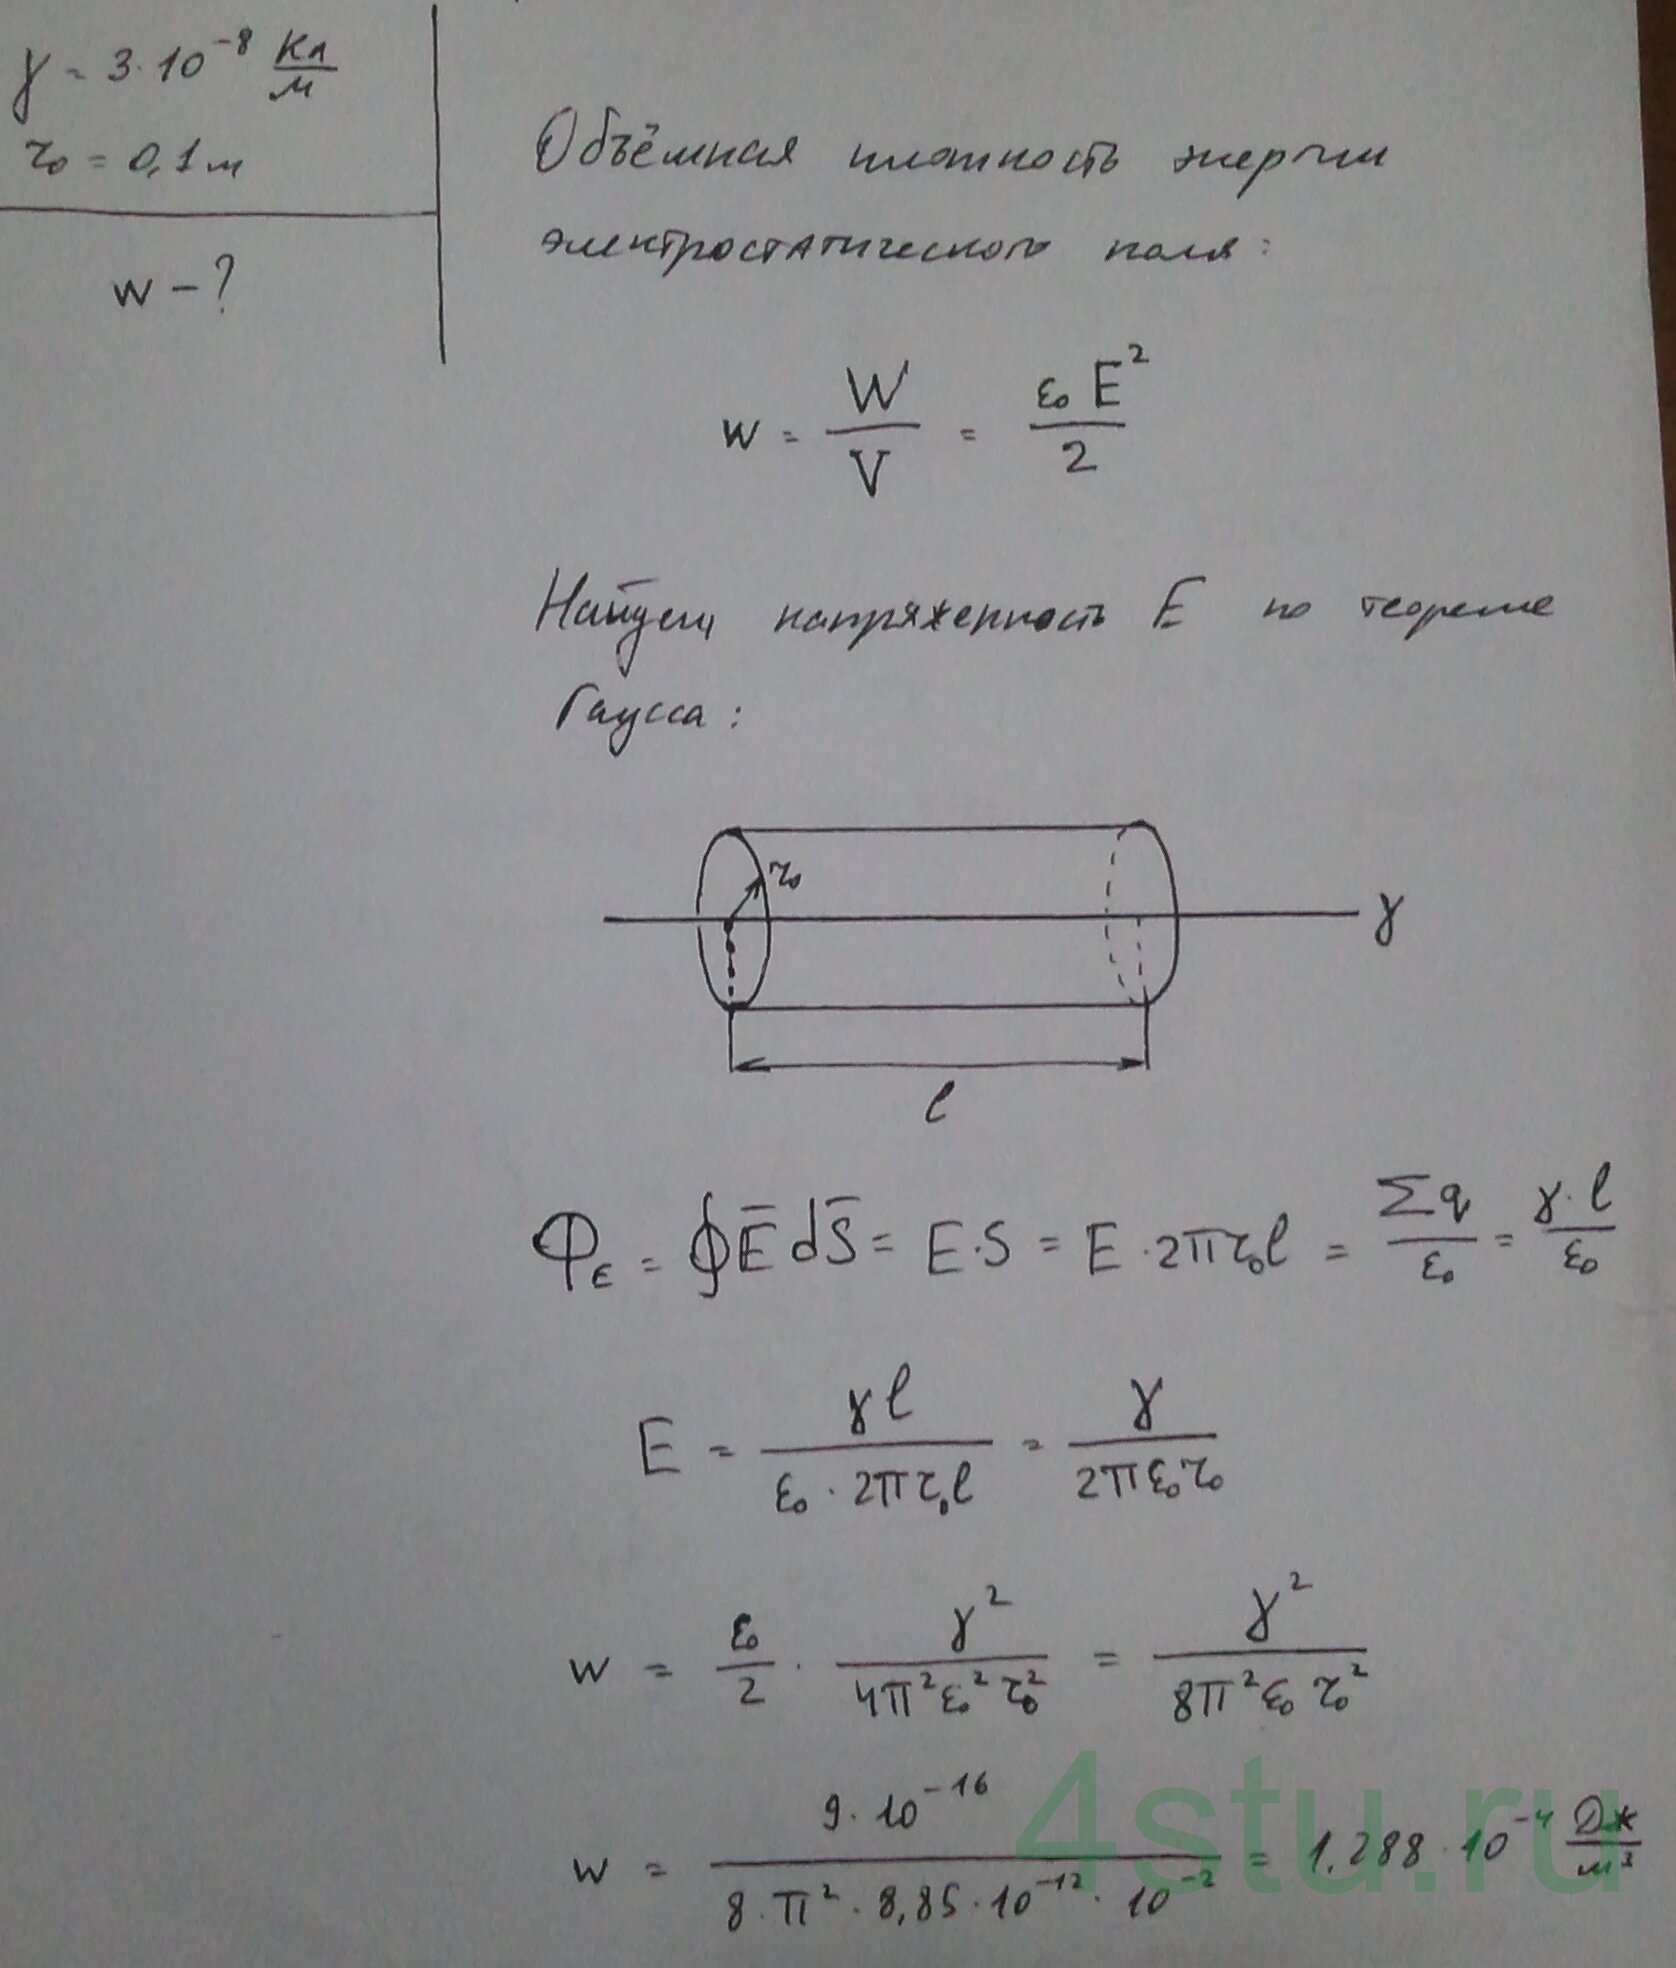 γ = 3·10⁻⁸ Кл/м
r₀ = 0,1 м
w – ?
Объёмная плотность энергии
электростатического поля:
w = W/V = ε₀E²/2
Найдем напряженность E по теореме
Гаусса:
r₀
γ
l
Φ_E = ∮ E̅ dS̅ = E·S = E·2πr₀l = Σq/ε₀ = γ·l/ε₀
E = γl/(ε₀·2πr₀l) = γ/(2πε₀r₀)
w = ε₀/2 · γ²/(4π²ε₀²r₀²) = γ²/(8π²ε₀r₀²)
w = 9·10⁻¹⁶/(8·π²·8,85·10⁻¹²·10⁻²) = 1,288·10⁻⁴ Дж/м³
4stu.ru